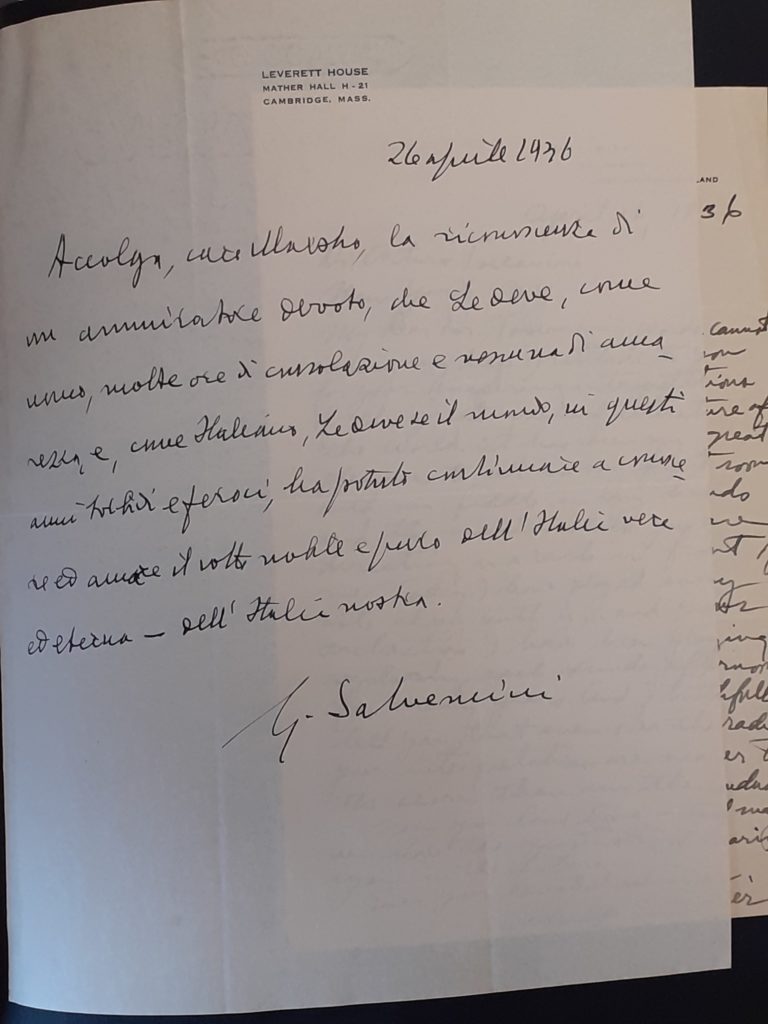 LEVERETT HOUSE
MATHER HALL H-21
CAMBRIDGE, MASS.
26 aprile 1936
Accolga, caro Maestro, la riconoscenza di
un ammiratore devoto, che Le deve, come
uomo, molte ore di consolazione e nessuna di ama-
rezza, e, come Italiano, Le deve se il mondo, in questi
anni torbidi e feroci, ha potuto continuare a conosce-
re ed amare il volto nobile e puro dell'Italia vera
ed eterna — dell'Italia nostra.
G. Salvemini
LAND
36
cannot
great